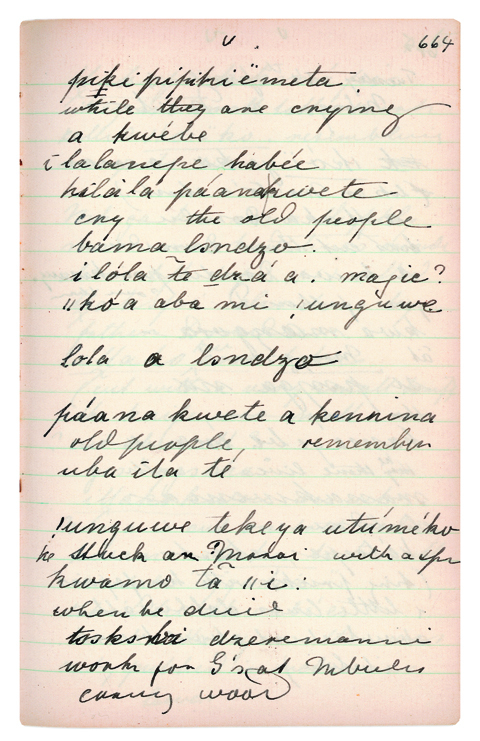 v . 664
piki pipikiëmeta
while they are crying
a kwébe
ilalanepe habée
hilála páana kwete
cry the old people
bama londzo.
ilóla te dzá a. magic?
"kóa aba mi !unguwe
lola a londzo
páana kwete a kennina
old people remember
uba ita té
!unguwe tekeya utúméko
he stuck an Masai with a spr
kwamo tã "i:
when he died
dzeremanni
work for G's at Mbulu
carry wood